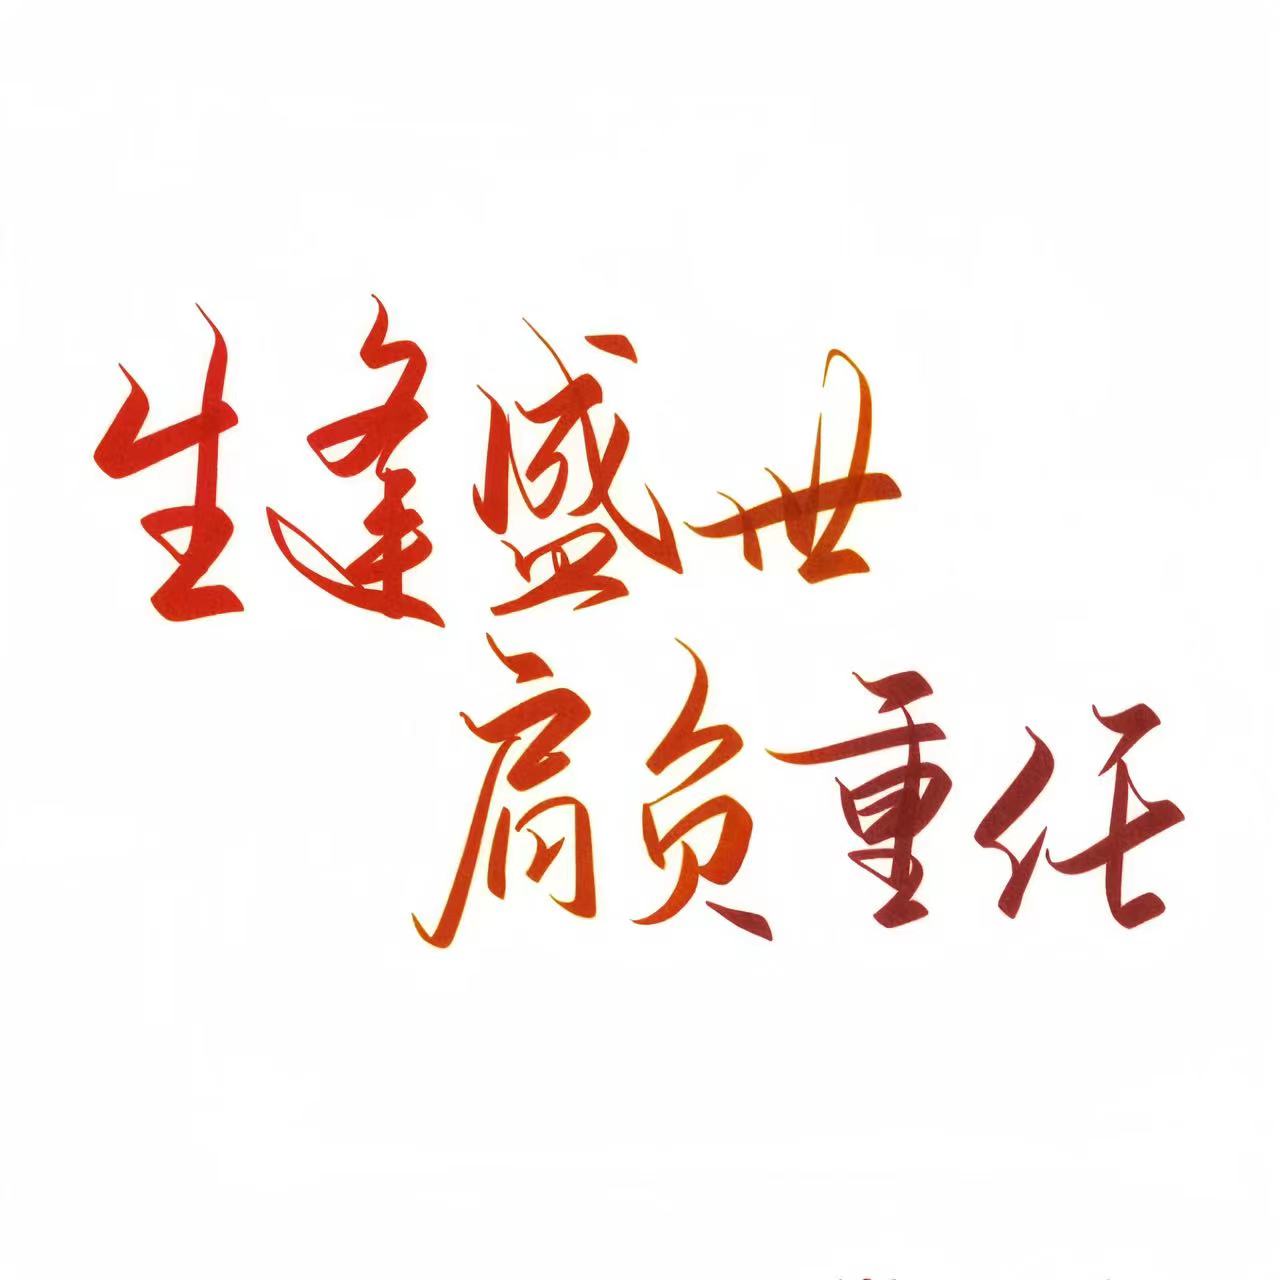 生逢盛世
肩负重任